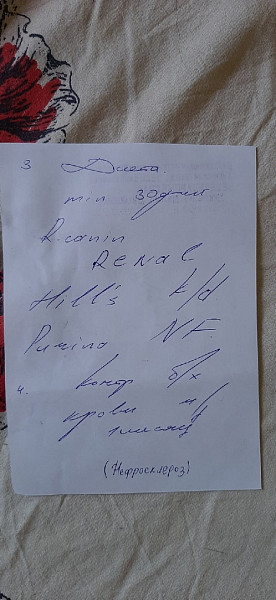 3 Диета.
min 30 дней
R.canin
RENAL
Hill's k/d
Purina NF.
4. Контр б/х
крови ч/з
1 месяц
(Нефросклероз)